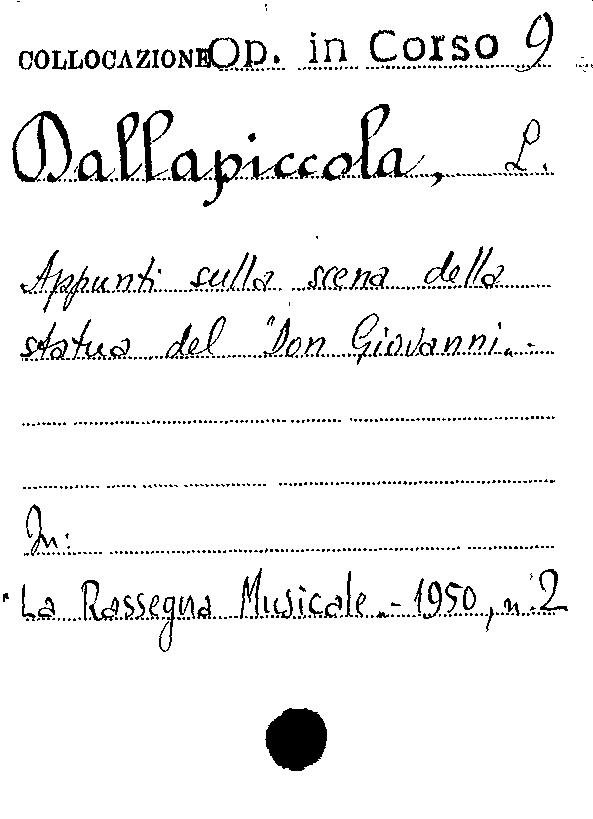 COLLOCAZIONE Op. in Corso 9
Dallapiccola, L.
Appunti sulla scena della
statua del "Don Giovanni„.-
In:
"La Rassegna Musicale„.- 1950, n. 2